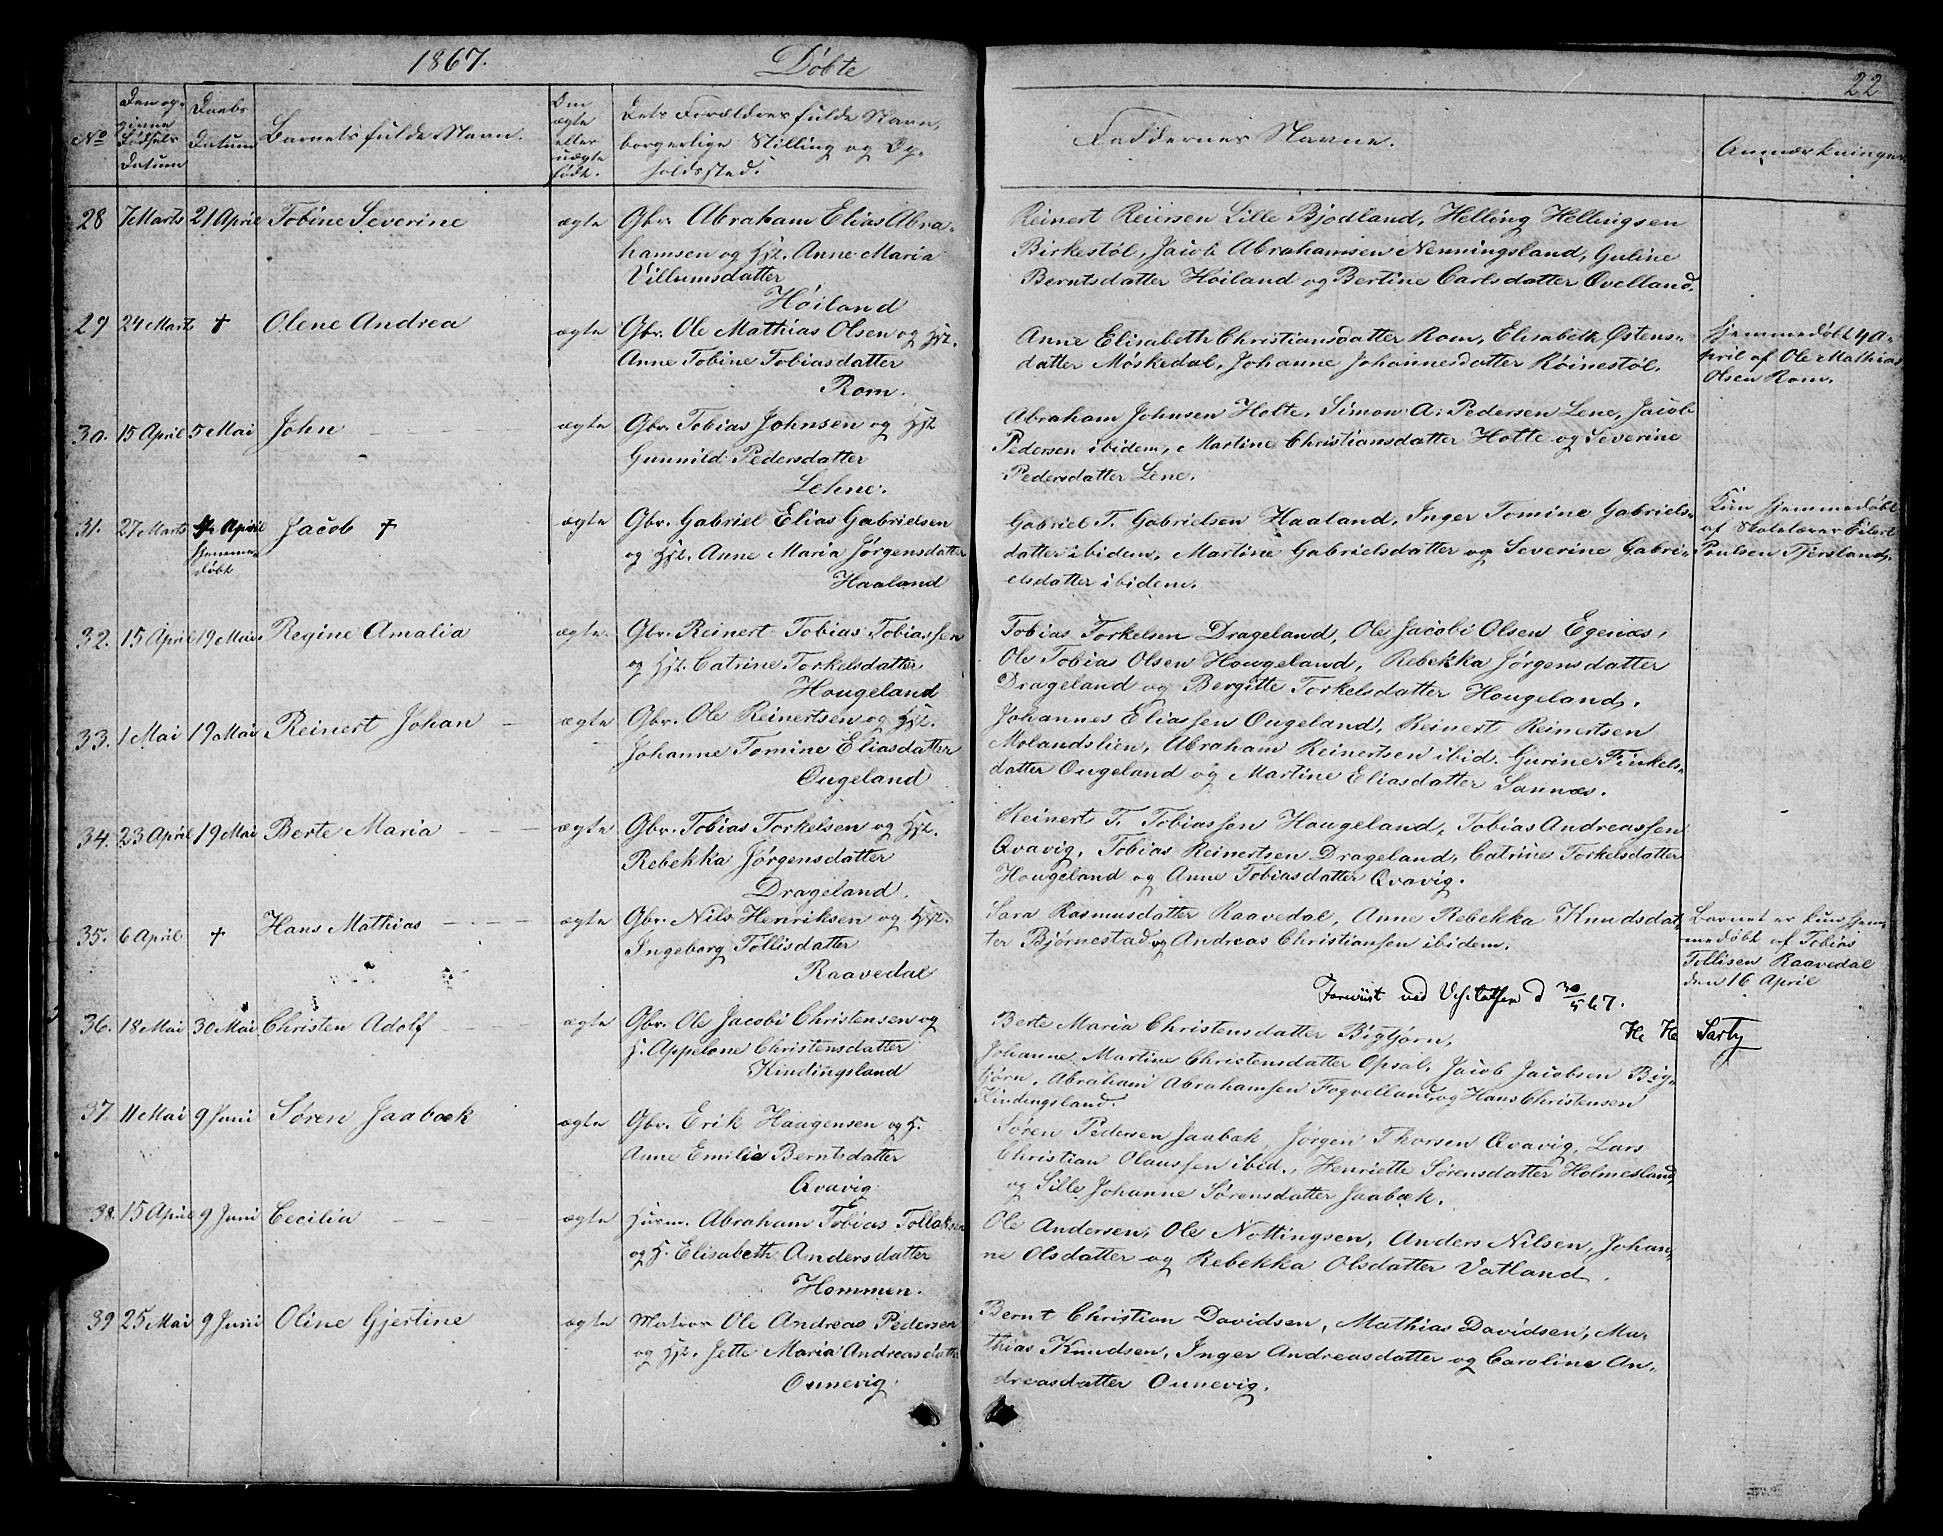 1867. Døbte
22
No
Den og
Fødsels
Datum
Daabs
Datum
Barnets fulde Navn.
Om
ægte
eller
uægte
født.
Dets Forældres fulde Navn,
borgerlige Stilling og Op-
holdssted.
Faddernes Navne.
Anmærkninger
28 7 Marts 21 April Tobine Severine ægte Gbr. Abraham Elias Abra-
hamsen og Hst. Anne Maria
Villumsdatter
Høiland
Reinert Reiersen Lille Bjodland, Helling Hellingsen
Birkestøl, Jacob Abrahamsen Nenningsland, Guline
Berntsdatter Høiland og Bertine Carlsdatter Ovelland.
29 24 Marts † Olene Andrea ægte Gbr. Ole Mathias Olsen og Hst.
Anne Tobine Tobiasdatter
Rom.
Anne Elisabeth Christiansdatter Rom, Elisabeth Østens-
datter Møskedal, Johanne Johannesdatter Røinestøl.
Hjemmedøbt 4 A-
pril af Ole Mathias
Olsen Rom.
30. 15 April 5 Mai John ægte Gbr. Tobias Johnsen og Hst
Gunnild Pedersdatter
Lehne.
Abraham Johnsen Holte, Simon A. Pedersen Lene, Jacob
Pedersen ibidem, Martine Christiansdatter Holte og Severine
Pedersdatter Lene.
31. 27 Marts April
Hjemme-
døbt
Jacob † ægte Gbr. Gabriel Elias Gabrielsen
og Hst. Anne Maria Jørgensdatter
Haaland
Gabriel T. Gabrielsen Haaland, Inger Tomine Gabriels-
datter ibidem, Martine Gabrielsdatter og Severine Gabri-
elsdatter ibidem.
Kun hjemmedøbt
af Skolelærer Eilert
Poulsen Tjersland.
32. 15 April 19 Mai Regine Amalia ægte Gbr. Reinert Tobias Tobiassen
og Hst. Catrine Torkelsdatter
Hougeland
Tobias Torkelsen Drageland, Ole Jacobi Olsen Egenæs,
Ole Tobias Olsen Hougeland, Rebekka Jørgensdatter
Drageland og Bergitte Torkelsdatter Hougeland.
33. 1 Mai 19 Mai Reinert Johan ægte Gbr. Ole Reinertsen og Hst.
Johanne Tomine Eliasdatter
Ougeland
Johannes Eliassen Ougeland, Reinert Reinertsen
Molandslien, Abraham Reinertsen ibid. Gurine Finkels-
datter Ougeland og Martine Eliasdatter Sannæs.
34. 23 April 19 Mai Berte Maria ægte Gbr. Tobias Torkelsen og Hst.
Rebekka Jørgensdatter
Drageland.
Reinert T. Tobiassen Hougeland, Tobias Andreassen
Qvavig, Tobias Reinertsen Drageland, Catrine Torkelsdatter
Hougeland og Anne Tobiasdatter Qvavig.
35. 6 April † Hans Mathias ægte Gbr. Nils Henriksen og Hst.
Ingeborg Tollisdatter
Raavedal
Sara Rasmusdatter Raavedal, Anne Rebekka Knudsdat-
ter Bjørnestad og Andreas Christiansen ibidem.
Barnet er kun hjem-
medøbt af Tobias
Tollisen Raavedal
den 16 April
Foreviist ved Visitatsen d 30/5 67.
36. 18 Mai 30 Mai Christen Adolf ægte Gbr. Ole Jacobi Christensen og
H. Appelone Christensdatter
Kindingsland
Berte Maria Christensdatter Bigtjørn,
Johanne Martine Christensdatter Opsal, Jacob Jacobsen Big-
tjørn, Abraham Abrahamsen Fogvelland og Hans Christensen
Kindingsland.
37. 11 Mai 9 Juni Søren Jaabæk ægte Gbr. Erik Haagensen og H.
Anne Emilie Berntsdatter
Qvavig
Søren Pedersen Jaabæk, Jørgen Thorsen Qvavig, Lars
Christian Olaussen ibid., Henriette Sørensdatter Holmesland,
og Sille Johanne Sørensdatter Jaabæk.
38. 15 April 9 Juni Cecilia ægte Huusm. Abraham Tobias Tollaksen
og H. Elisabeth Andersdatter
Hommen.
Ole Andersen, Ole Nottingsen, Anders Nilsen, Johan-
ne Olsdatter og Rebekka Olsdatter Vatland.
39 25 Mai 9 Juni Oline Gjertine ægte Matros Ole Andreas Pedersen
og Hst. Jette Maria Andreasdatter
Onnevig.
Bernt Christian Davidsen, Mathias Davidsen, Ma-
thias Knudsen, Inger Andreasdatter og Caroline An-
dreasdatter Onnevig.